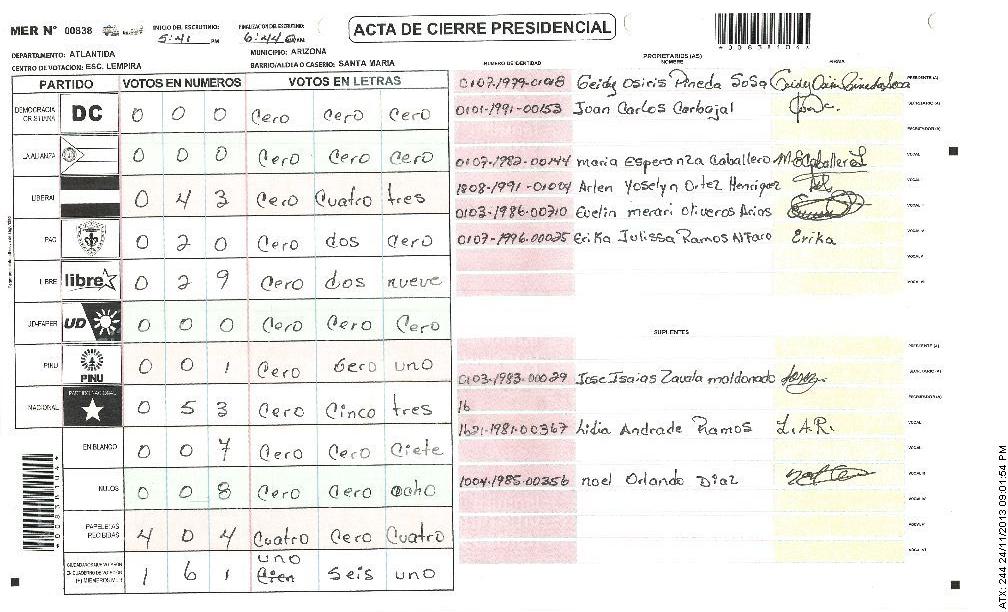 MER Nº 00838 INICIO DEL ESCRUTINIO: 5:41 PM FINALIZACION DEL ESCRUTINIO: 6:44 ACTA DE CIERRE PRESIDENCIAL
DEPARTAMENTO: ATLANTIDA MUNICIPIO: ARIZONA
CENTRO DE VOTACION: ESC. LEMPIRA BARRIO/ALDEA O CASERIO: SANTA MARIA
PARTIDO VOTOS EN NUMEROS VOTOS EN LETRAS
DEMOCRACIA CRISTIANA DC 0 0 0 Cero Cero Cero
LA ALIANZA 0 0 0 Cero Cero Cero
LIBERAL 0 4 3 Cero Cuatro tres
PAC 0 2 0 Cero dos Cero
LIBRE libre 0 2 9 Cero dos nueve
UD-FAPER UD 0 0 0 Cero Cero Cero
PINU PINU 0 0 1 Cero Cero uno
NACIONAL PARTIDO NACIONAL 0 5 3 Cero Cinco tres
EN BLANCO 0 0 7 Cero Cero Ciete
NULOS 0 0 8 Cero Cero ocho
PAPELETAS RECIBIDAS 4 0 4 Cuatro Cero Cuatro
1 6 1 uno Cien seis uno
NUMERO DE IDENTIDAD PROPIETARIOS (AS) NOMBRE FIRMA
Geidy Osiris Pineda Sosa PRESIDENTE (A)
0101-1991-00153 Juan Carlos Carbajal SECRETARIO (A)
ESCRUTADOR (A)
0107-1982-00144 maria Esperanza Caballero M E Caballero L VOCAL
Arlen Yoselyn Ortez Henriquez VOCAL
0103-1986-00710 Evelin merari oliveros Arias VOCAL
0107-1996-00035 Erika Julissa Ramos Alfaro Erika
SUPLENTES
PRESIDENTE (A)
0103-1983-00029 Jose Isaias Zavala maldonado SECRETARIO (A)
16 ESCRUTADOR (A)
1621-1981-00367 Lidia Andrade Ramos L.A.R. VOCAL
1004-1985-00356 noel Orlando Diaz
ATX: 244 24/11/2013 09:01:54 PM